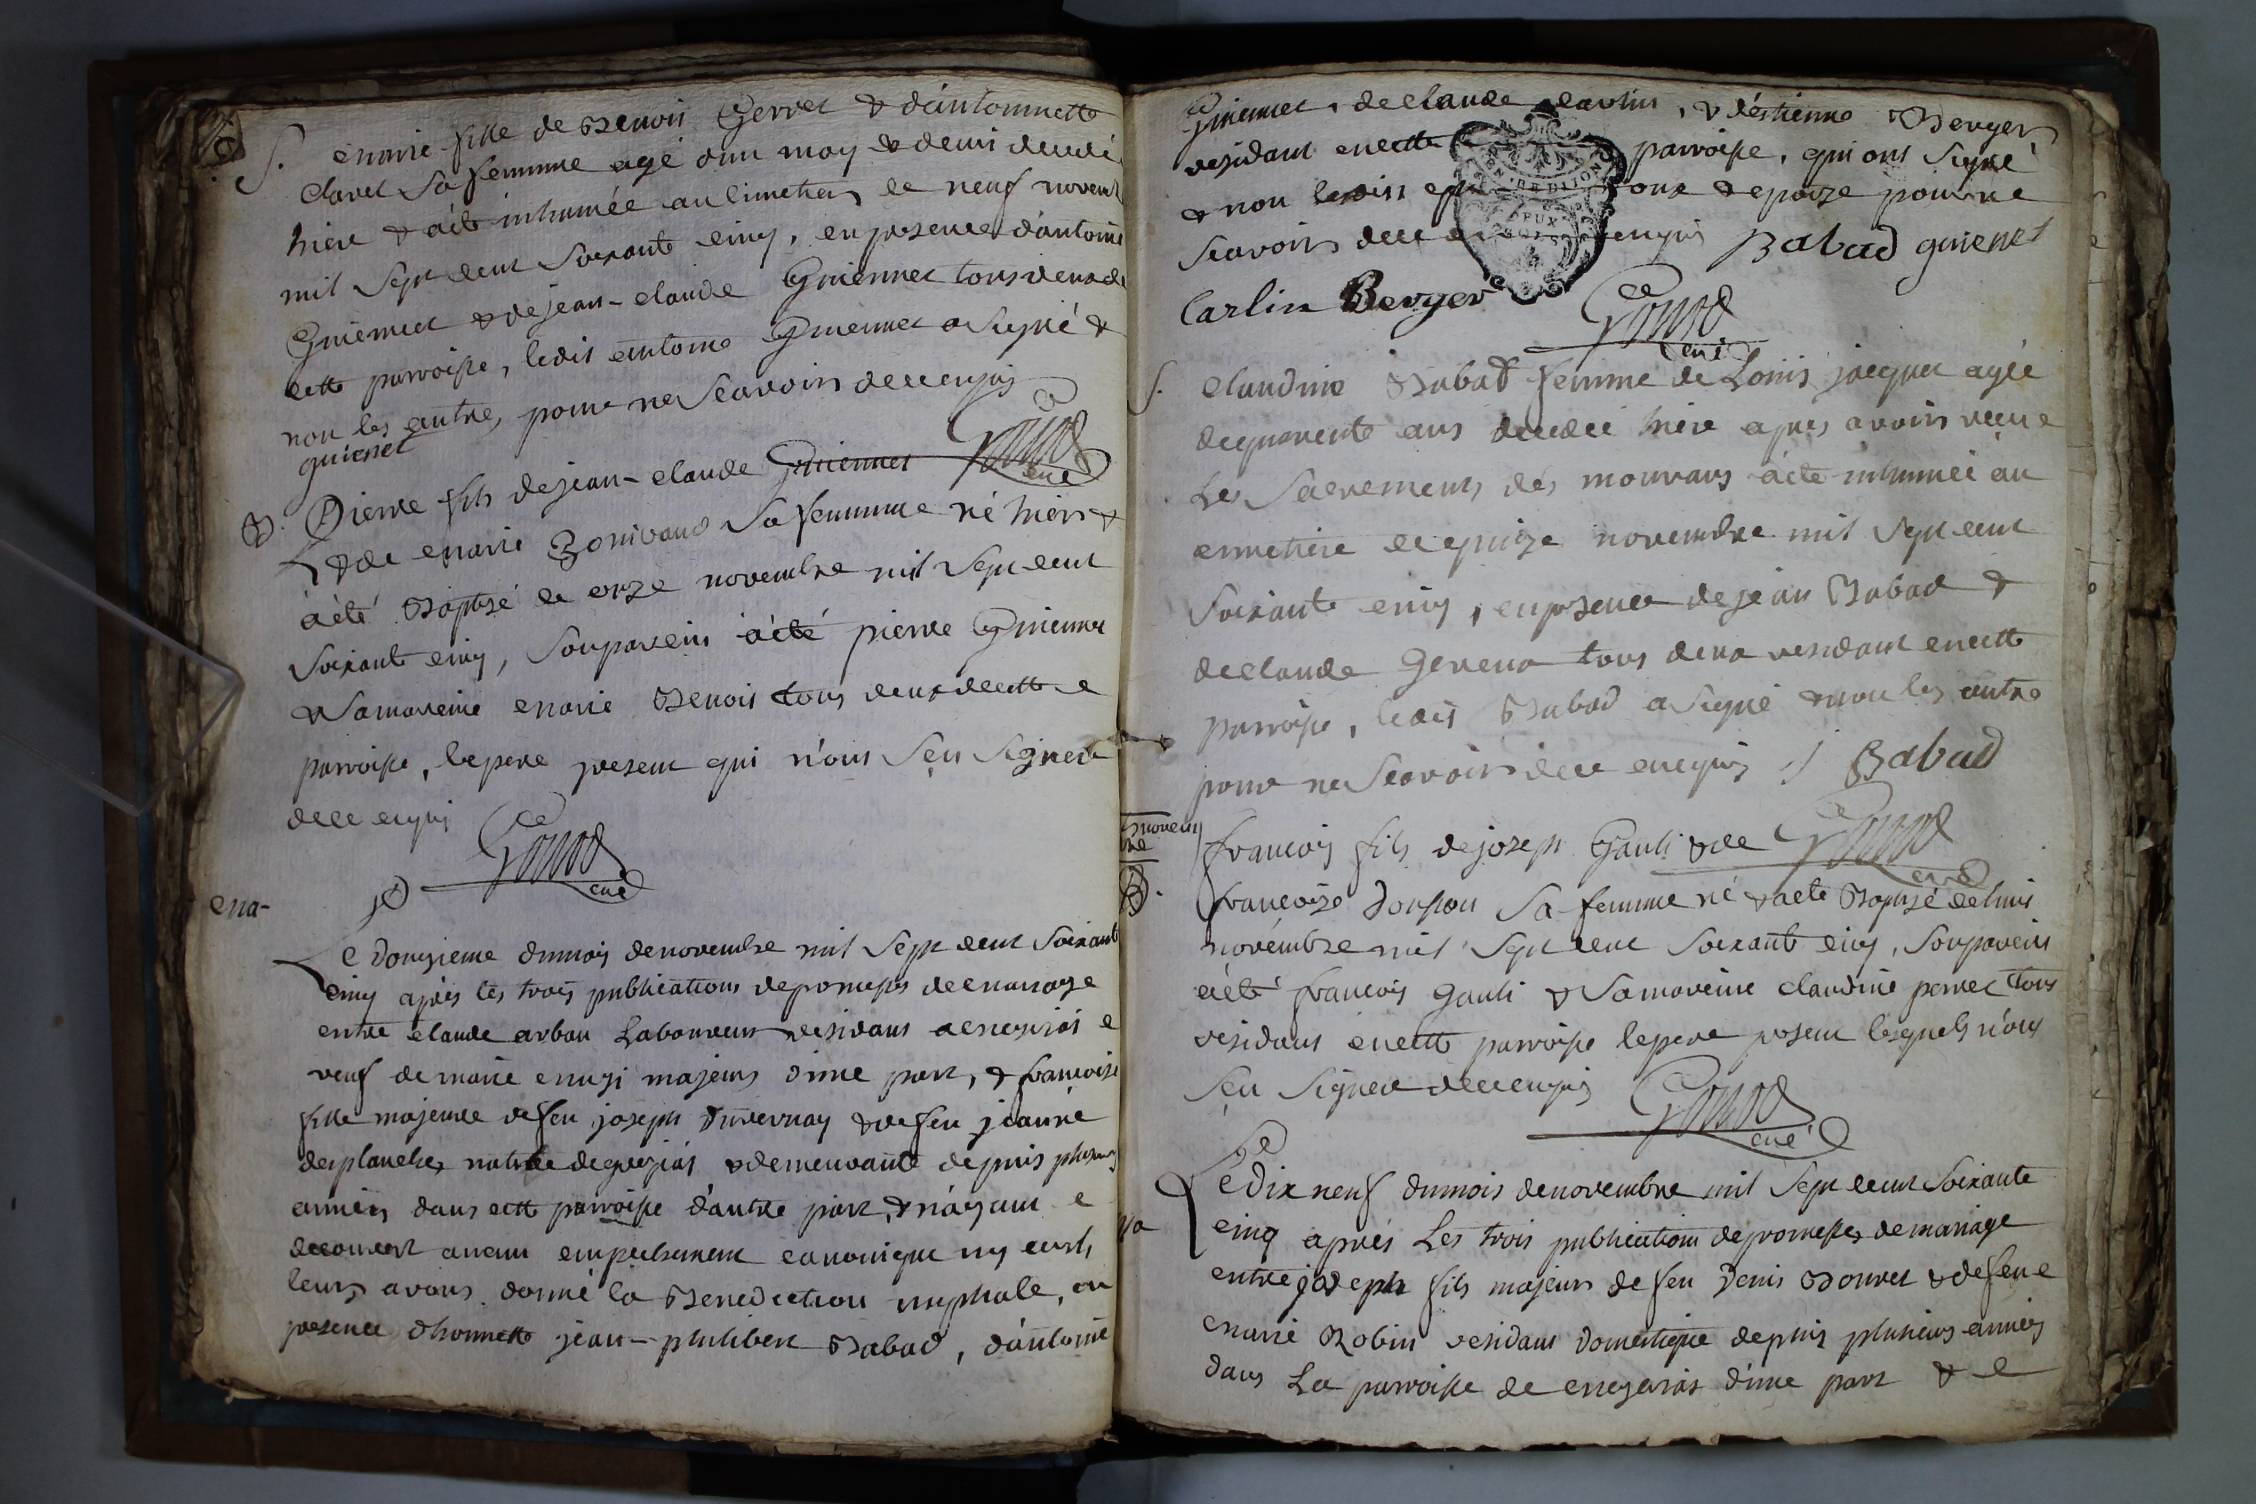 S. marie fille de Benois Gervet & d'antoinnette
Claret Sa femme agé d'un moy & demi decedé
hiere & a été inhumée au cimetiere ce neuf novem
mil Sept cent Soixante cinq, en presence d'antoine
Guiennet & de jean-claude Guiennet tous deux de
cette parroisse, ledit antoine Guiennet a signé &
non les autres, pour ne Scavoir de ce enquis
guienet Gonod curé
B. Pierre fils de jean-claude Guiennet
& de marie Bonivand Sa femme né hiers &
a été Baptisé ce onze novembre mil Sept cent
Soixante cinq, Son parein a été pierre Guiennet
& Sa mareine marie Benois tous deux de cette
parroisse, le pere present qui n'ont Sçu Signer
de ce enquis
Gonod curé
ma-
Le douzieme du mois de novembre mil Sept cent Soixant
cinq apres les trois publications de promesses de mariage
entre claude arbau Laboureur residant a
veuf de marie majeur d'une part, & francoise
fille majeure de feu joseph Duvernay & de feu jeanne
desplanches native de & demeurante depuis plusieurs
années dans cette parroisse d'autre part, & n'ayant
decouvert aucun empechement canonique ny civil
leurs avons donné la Benediction nuptiale, en
presence d'honnette jean-philibert Babad, d'antoine
Guiennet, de claude carlin, & d'estienne Berger
residant en cette parroisse, qui ont Signé
& non lesdits epoux & epouze pour ne
Scavoir de ce enquis Babad guienet
Carlin Berger
Gonod curé
S. Claudine Babad femme de Louis jacquet agée
de quarente ans decedée hiere apres avoir reçue
Les Sacrements des mourans a été inhumée au
cimetiere ce quinze novembre mil Sept cent
Soixante cinq, en presence de jean Babad &
de claude tous deux residant en cette
parroisse, ledit Babad a signé & non les autre
pour ne Scavoir de ce enquis J Babad
novem
bre
Gonod curé
B. francois fils de joseph Gauli & de
francoise Sa femme né & a été Baptisé
novembre mil Sept cent Soixante cinq, Son parein
a été francois Gauli & Sa mareine claudine perret tous
residans en cette parroisse le pere present lesquels n'ont
Sçu Signer de ce enquis
Gonod curé
Le Dix neuf du mois de novembre mil Sept cent Soixante
cinq aprés Les trois publication de promesses de mariage
entre joseph fils majeur de feu Denis Bouvet & de feue
marie Robin residant domestique depuis plusieurs années
dans La parroisse de d'une part &